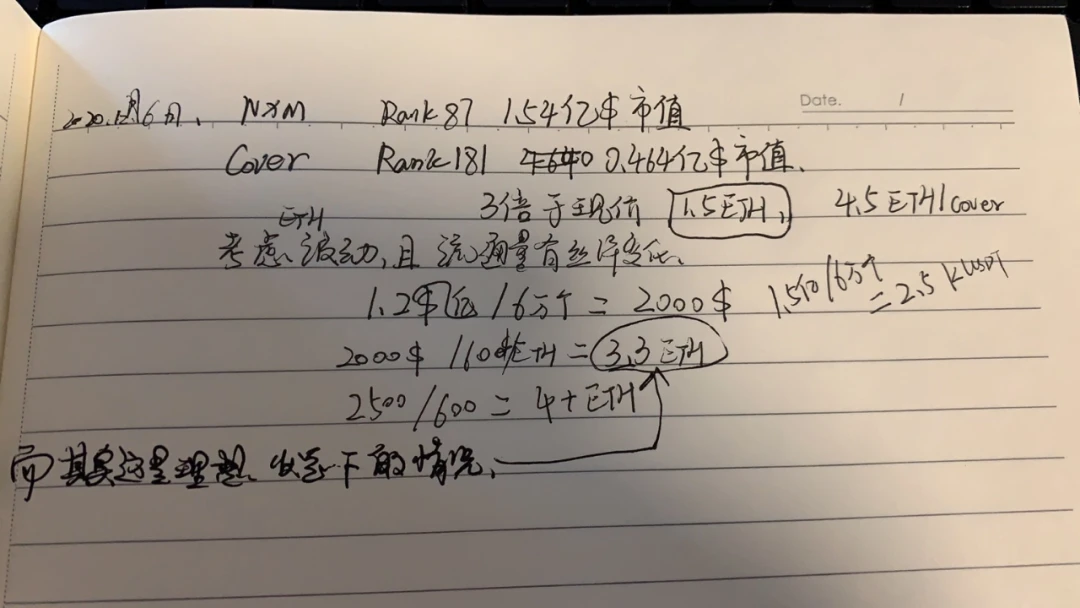 Date. /
2020.12月6日. NXM Rank 87 1.54亿$ 市值
Cover Rank 181 0.464亿$ 市值.
3倍于现价 1.5ETH, 4.5 ETH/cover
ETH
考虑波动,且流通量有些许变化.
1.2$亿/6万个 = 2000$
1.5亿/6万个
= 2.5K USDT
2000$ /600$/ETH = 3.3 ETH
2500/600 = 4+ ETH
而其实这是理想 下的情况.